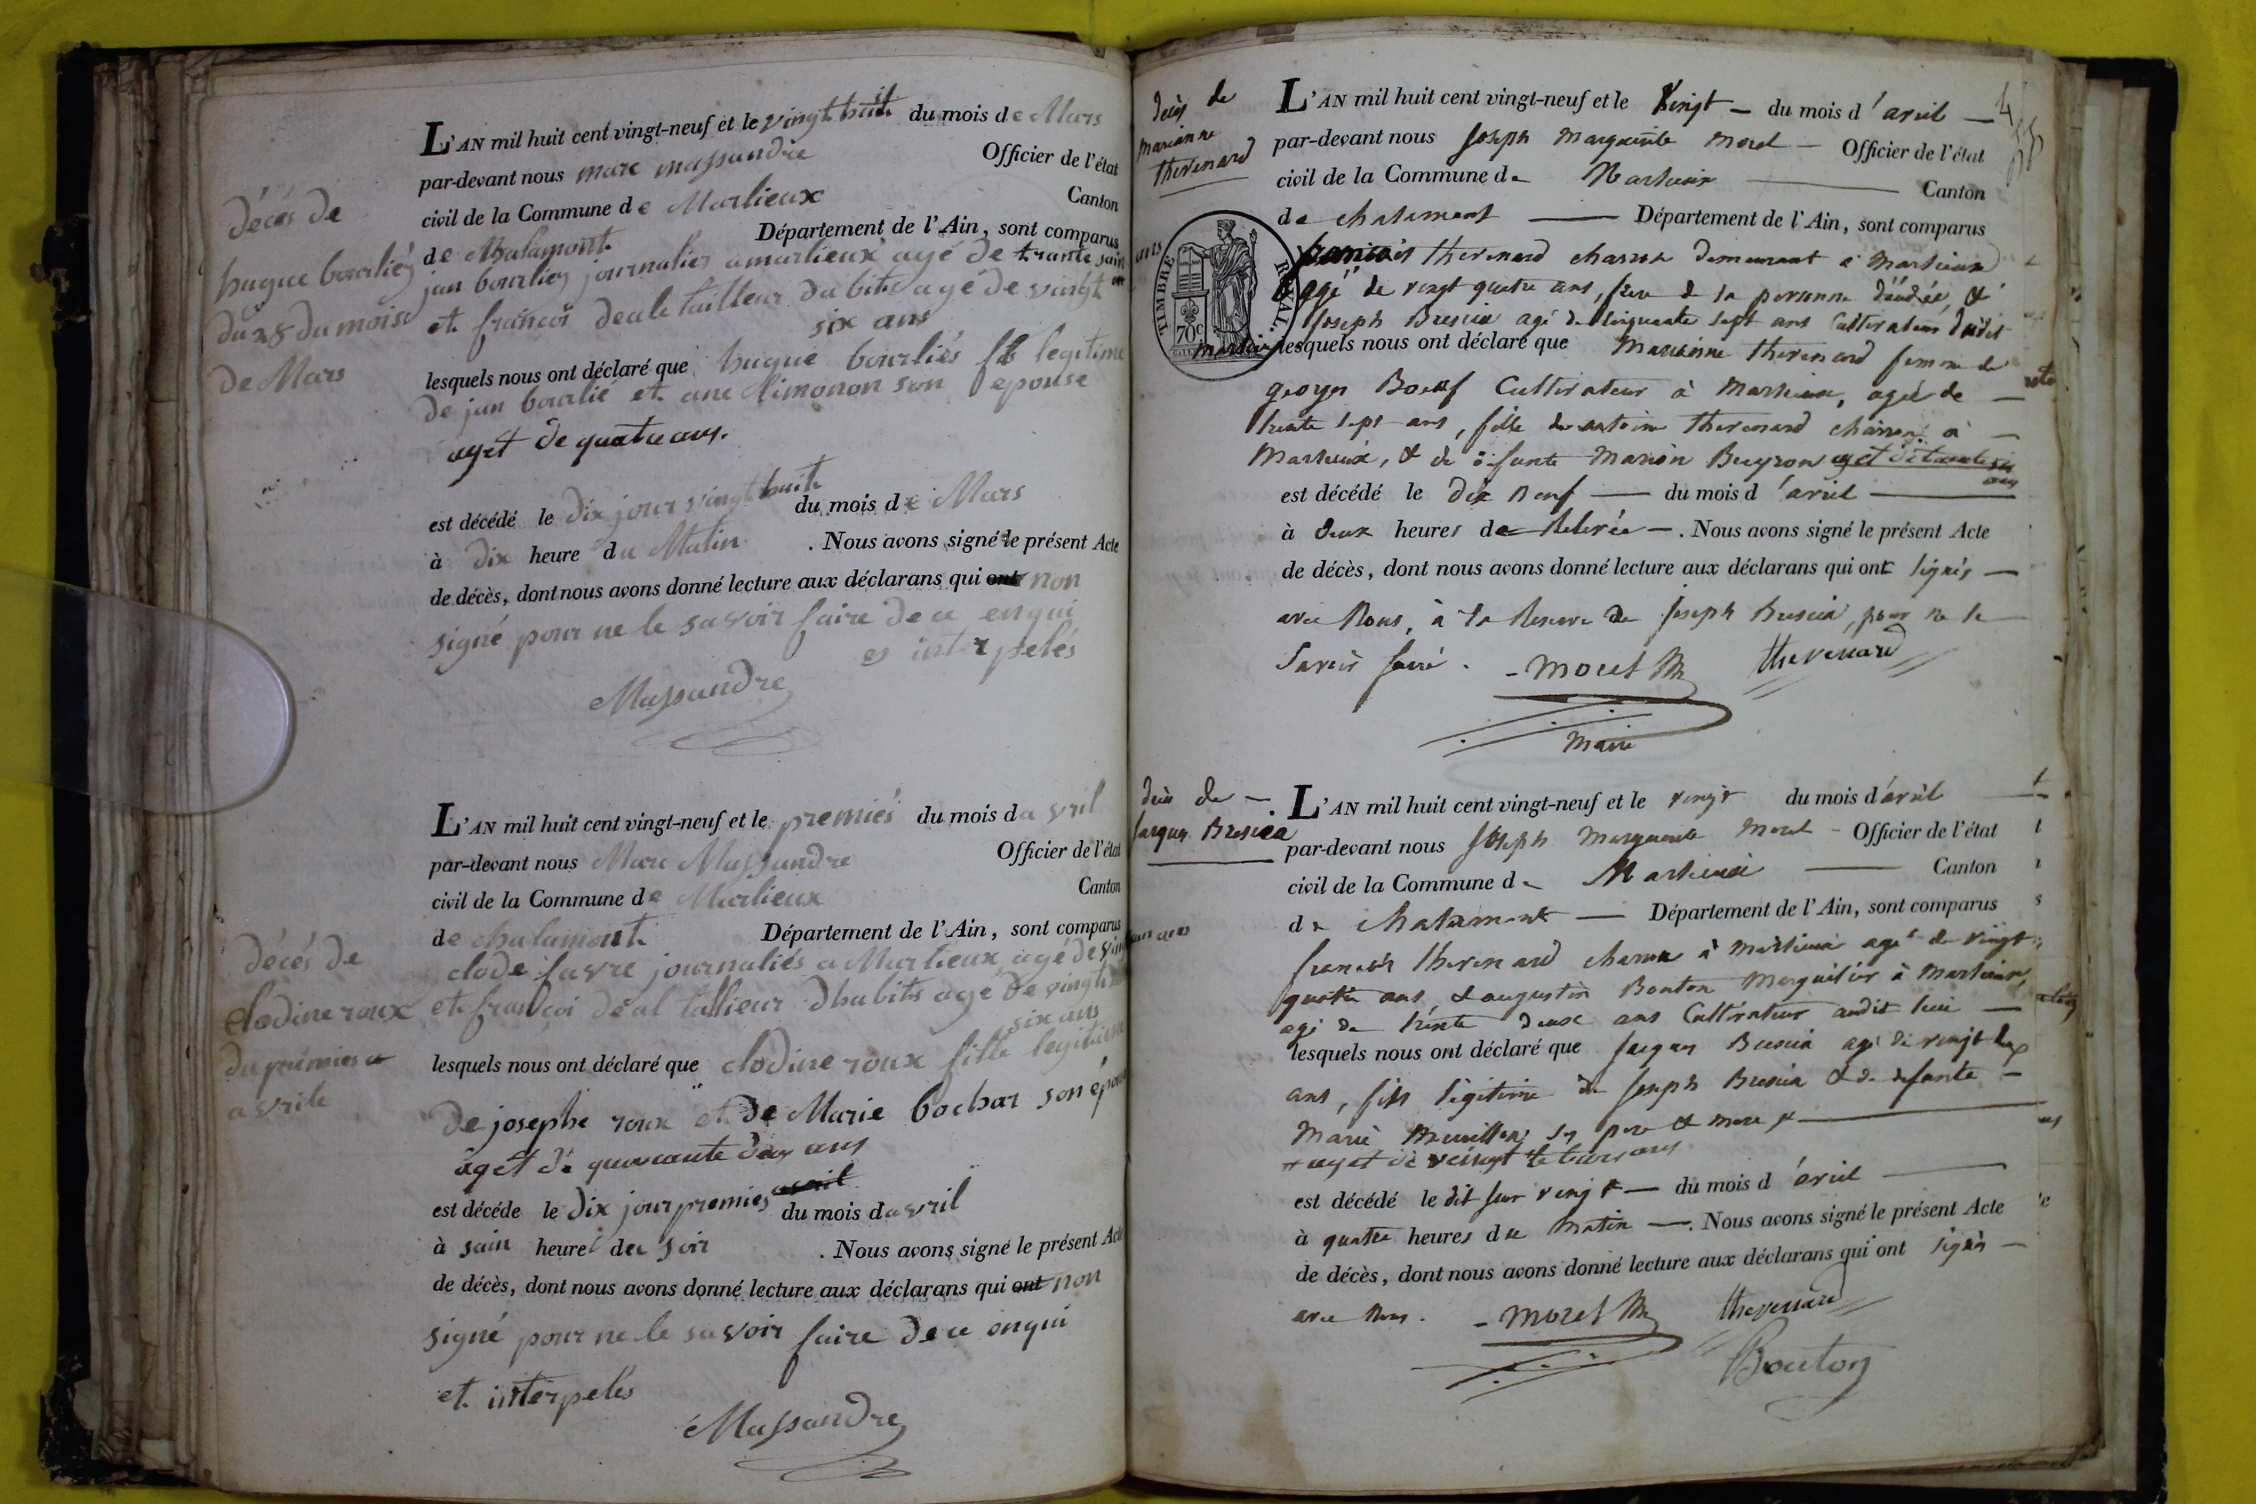 décés de
hugue bourliés
du 28 du mois
de Mars
L'AN mil huit cent vingt-neuf et le vingt huit du mois de Mars
par-devant nous marc massandre Officier de l'état
civil de la Commune de Marlieux Canton
de Chalamont Département de l'Ain, sont comparus
jan bourlies journalier a marlieux agé de trante sain
et françoi deale tailleur dabits agé de vingt
six ans
lesquels nous ont déclaré que hugue bourliés fils legitime
de jan bourlié et ane limonon son epouse
aget de quatre ans.
est décédé le dix jour vingt huit du mois de Mars
à dix heure du Matin . Nous avons signé le présent Acte
de décès, dont nous avons donné lecture aux déclarans qui ont non
signé pour ne le savoir faire de ce enqui
es interpelés
Massandre
décés de
clodine roux
du premies
avrile
L'AN mil huit cent vingt-neuf et le premiés du mois davril
par-devant nous Marc Massandre Officier de l'état
civil de la Commune de Marlieux Canton
de chalamont Département de l'Ain, sont comparus
clode favre journaliés a Marlieux agé de vin
et françoi déal tallieur dhabits age de vingt
six ans
lesquels nous ont déclaré que clodine roux fille legitime
de josephe roux et de Marie bochar son épouse
aget de quarante deux ans
est décédé le dix jour premies avril du mois davril
à sain heure du soir . Nous avons signé le présent Acte
de décès, dont nous avons donné lecture aux déclarans qui ont non
signé pour ne le savoir faire de ce enqui
et interpelés
Massandre
décès de
marianne
thevenard
L'AN mil huit cent vingt-neuf et le Vingt — du mois d'avril —
par-devant nous Joseph Marguerite Morel — Officier de l'état
civil de la Commune de Marlieux — Canton
de chalamont — Département de l'Ain, sont comparus
TIMBRE ROYAL.
70c
françois thevenard charron demeurant à Marlieux
agé de vingt quatre ans, frere de la personne décédée, &
Joseph Bressia agé de cinquante sept ans Cultivateur dudit
marlieux lesquels nous ont déclaré que Marianne thevenard femme de
georges Boeuf Cultivateur à Marlieux, agée de —
trente sept ans, fille de antoine thevenard charron à —
Marlieux, & de defunte Marion Buyron
est décédé le dix neuf — du mois d'avril —
à deux heures de Relevée — . Nous avons signé le présent Acte
de décès, dont nous avons donné lecture aux déclarans qui ont signés —
avec Nous, à la Reserve de Joseph Bressia, pour ne le
Savoir faire. - Morel M thevenard
Maire
décès de —
Jacques Bressia
L'AN mil huit cent vingt-neuf et le vingt du mois d'avril
par-devant nous Joseph Marguerite Morel - Officier de l'état
civil de la Commune de Marlieux — Canton
de Chalamont — Département de l'Ain, sont comparus
françois thevenard charron à Marlieux agé de vingt
quatre ans, & augustin Bouton Marguilier à Marlieux,
agé de trente deux ans Cultivateur audit lieu —
lesquels nous ont déclaré que Jacques Bressia agé de vingt
ans, fils légitime de Joseph Bressia & de defunte —
Marie ses pere & mere +
+ aget de veingt te trois ans
est décédé le dit jour vingt — du mois d'avril —
à quatre heures du matin — . Nous avons signé le présent Acte
de décès, dont nous avons donné lecture aux déclarans qui ont signés —
avec Nous. - Morel M thevenard
Bouton